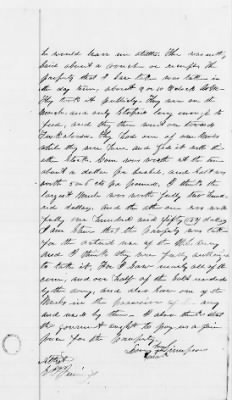 he would leave me
said about a voucher or receipt. The
property that I saw taken was taken in
the day time, about 9 or 10 o'clock A.M.
They took it publicly. They were on the
march, and only stopped long enough to
feed, and they then went on toward
They had one of our Mules
while they were here and fed it with the
other stock. Corn was worth at the time
about a dollar per bushel, and salt was
worth 5 or 6 cts per pound. I think the
largest Mule was worth fully two hund-
red dollars. And the other one was worth
fully one hundred and fifty dollars
I am sure that the property was taken
for the actual use of the U.S. Army
and I think they were fully authorized
to take it. For I saw nearly all of the
corn, and one half of the salt
by the army, and also saw one of the
Mules in the possession of the army
and used by them. I also think that
the government ought to pay us a fair
price for the property.
Simpson
Attest